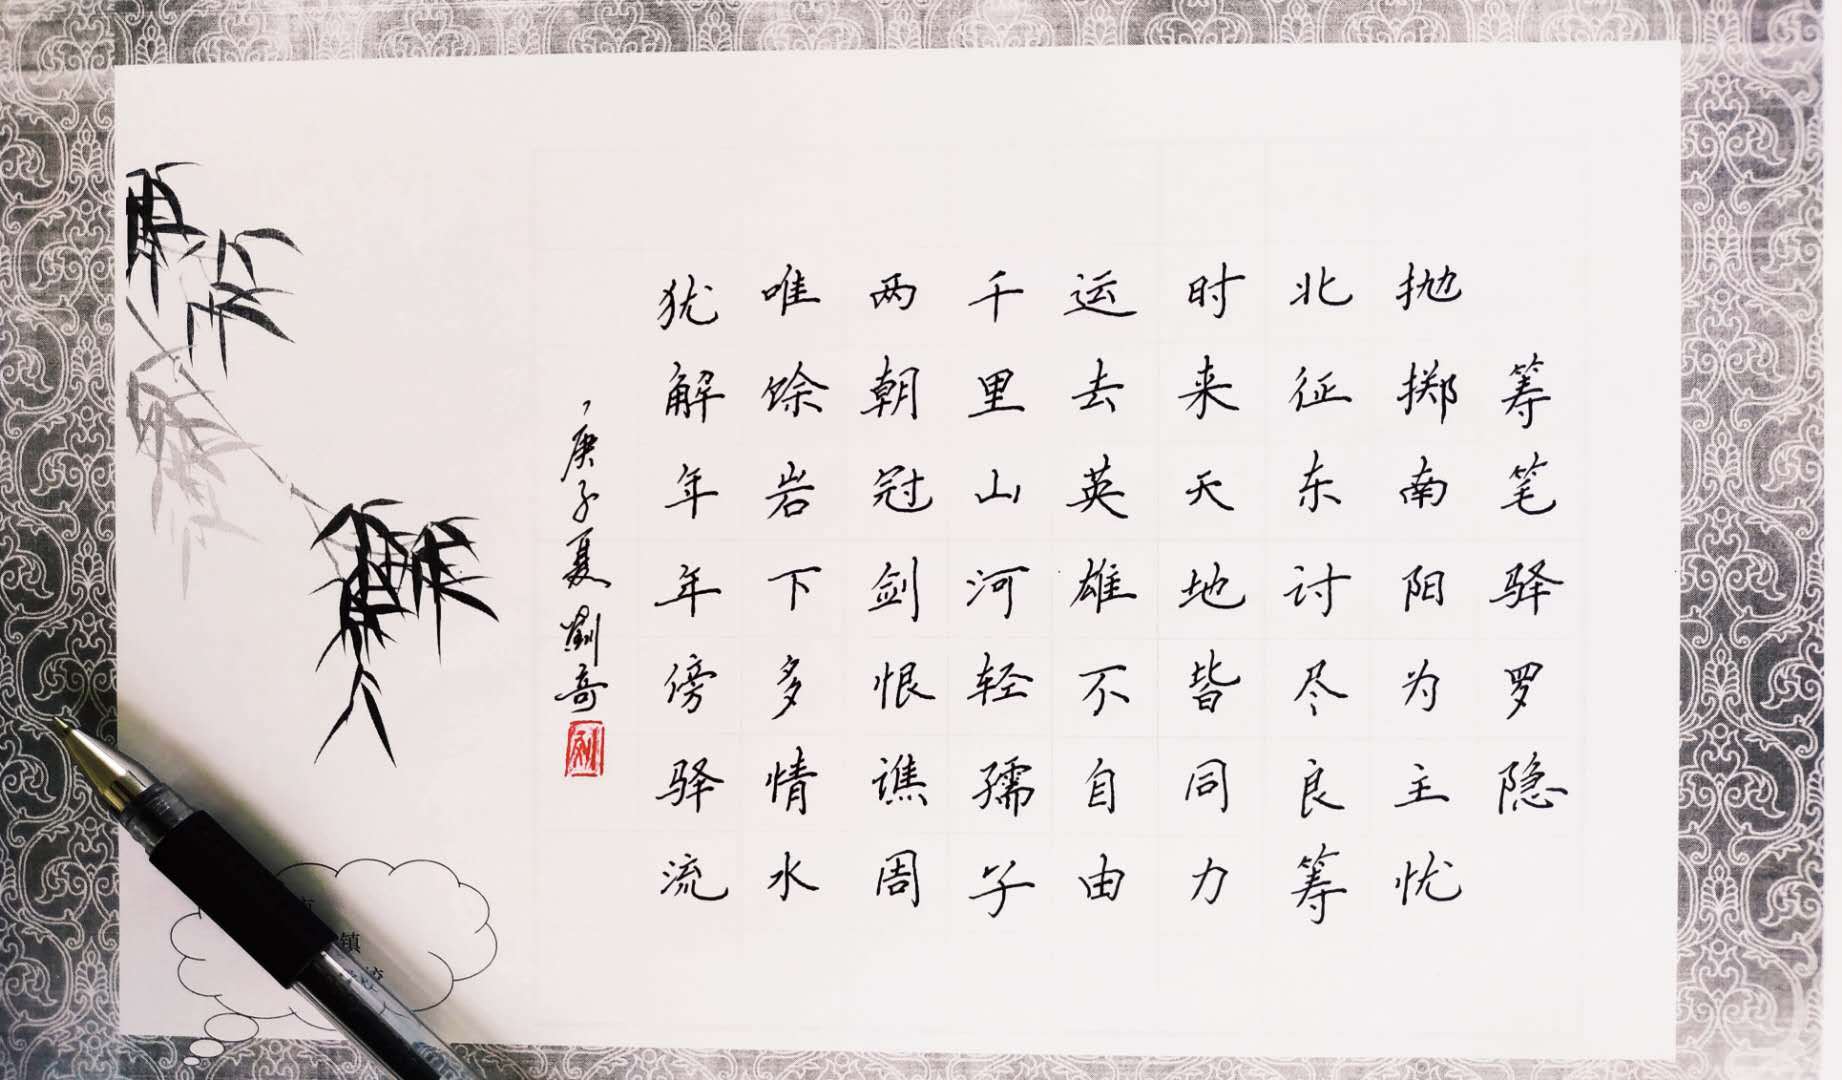 筹笔驿罗隐
抛掷南阳为主忧
北征东讨尽良筹
时来天地皆同力
运去英雄不自由
千里山河轻孺子
两朝冠剑恨谯周
唯馀岩下多情水
犹解年年傍驿流
庚子夏劉奇
刘
镇